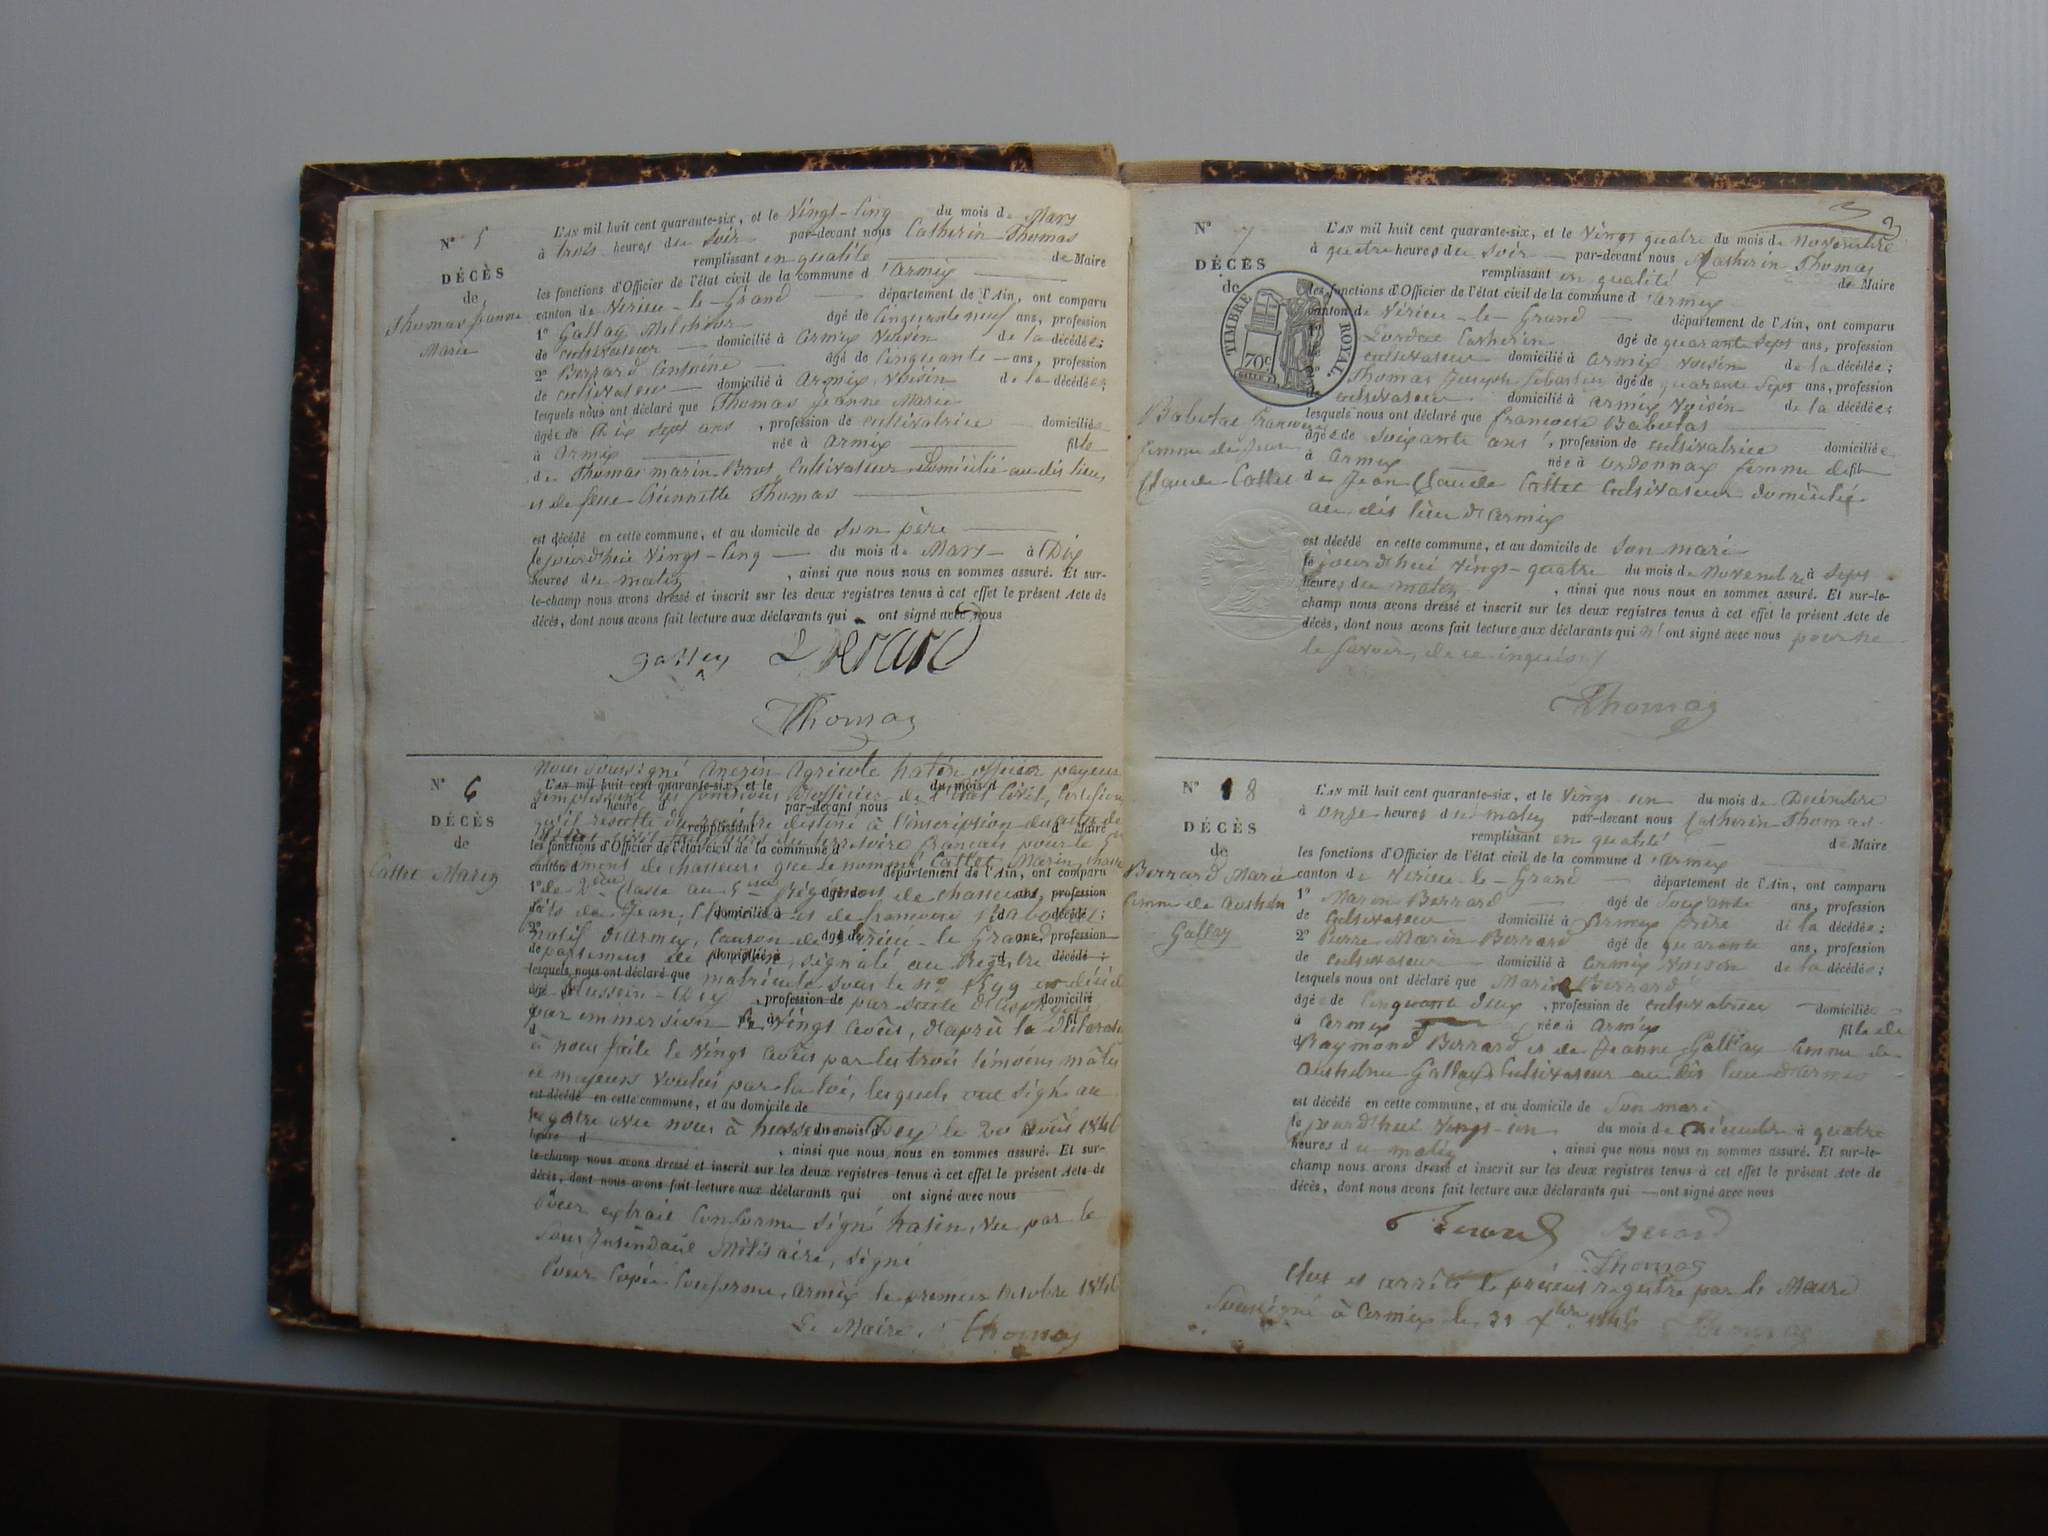 N° 5
DÉCÈS
de
Thomas Jeanne
Marie
L'AN mil huit cent quarante-six, et le Vingt-Cinq du mois de Mars
à trois heures du Soir par-devant nous Catherin Thomas
remplissant en qualité de Maire
les fonctions d'Officier de l'état civil de la commune d'armix
canton de Virieu-le-Grand département de l'Ain, ont comparu
1° Gallay Melchior âgé de Cinquante neuf ans, profession
de cultivateur domicilié à Armix Voisin de la décédée;
2° Berrard Antoine âgé de Cinquante ans, profession
de cultivateur domicilié à Armix Voisin de la décédée;
lesquels nous ont déclaré que Thomas Jeanne Marie
âgée de Dix sept ans, profession de cultivatrice domiciliée
à armix née à Armix fille
de Thomas marin Cultivateur Domicilié au dis lieu
et de feue Thomas
est décédé en cette commune, et au domicile de son père
le jourd'hui Vingt-Cinq du mois de Mars à Dix
heures du matin, ainsi que nous nous en sommes assuré. Et sur-
le-champ nous avons dressé et inscrit sur les deux registres tenus à cet effet le présent Acte de
décès, dont nous avons fait lecture aux déclarants qui ont signé avec nous
Thomas
N° 6
DÉCÈS
de
Cattet Marin
Nous Soussigné Agricole officier payeur
L'AN mil huit cent quarante-six, et le du mois d
remplissant les fonctions D'officier de l'Etat Civil, Certifions
à heure d par-devant nous
qu'il résulte du registre destiné à l'inscription des actes de
remplissant d Maire
territoire francais pour le 5
les fonctions d'Officier de l'état civil de la commune d
Régiment de chasseurs que le nommé Cattet Marin
canton d département de l'Ain, ont comparu
1° de 2ème Classe au 5ème Régiment de chasseurs, âgé de ans, profession
fils de Jean Claude et de francoise Babolat
d domicilié à d décédé;
natif d'Armix, Canton de Virieu-le Grand
2° âgé de ans, profession
département de signalé au Registre
de domicilié à d décédé;
lesquels nous ont déclaré que matricule sous le n° est décédé
âgé Hussein-Dey, profession de par suite d'asphyxie domicilié
par immersion le Vingt août, d'après la Déclaration
à nous faite le Vingt août par les trois témoins mâles
et majeurs Voulus par la loi, lesquels ont signé au
est décédé en cette commune, et au domicile de
registre avec nous à hussein Dey le 20 août 1846
le du mois d à
heure d, ainsi que nous nous en sommes assuré. Et sur-
le-champ nous avons dressé et inscrit sur les deux registres tenus à cet effet le présent Acte de
décès, dont nous avons fait lecture aux déclarants qui ont signé avec nous
Pour extrait Conforme Signé Vu par le
Sous Intendant Militaire, signé
Pour Copie Conforme, armix le premier Octobre 1846
Le Maire, Thomas
N° 7
DÉCÈS
de
TIMBRE ROYAL.
70c
Babolat francoise
femme de Jean
Claude Cattet
L'AN mil huit cent quarante-six, et le Vingt quatre du mois de Novembre
à quatre heures du Soir par-devant nous Catherin Thomas
remplissant en qualité de Maire
les fonctions d'Officier de l'état civil de la commune d'armix
canton de Virieu-le-Grand département de l'Ain, ont comparu
1° Catherin âgé de quarante sept ans, profession
de cultivateur domicilié à Armix Voisin de la décédée;
2° Thomas Joseph Sébastien âgé de quarante Sept ans, profession
de cultivateur domicilié à armix Voisin de la décédée;
lesquels nous ont déclaré que francoise Babolat
âgée de Soixante ans, profession de cultivatrice domiciliée
à Armix née à ordonnax femme de fil
de Jean Claude Cattet Cultivateur domicilié
au dis lieu d'Armix
est décédé en cette commune, et au domicile de son mari
le jourd'hui Vingt-quatre du mois de Novembre à Sept
heures du matin, ainsi que nous nous en sommes assuré. Et sur-le-
champ nous avons dressé et inscrit sur les deux registres tenus à cet effet le présent Acte de
décès, dont nous avons fait lecture aux déclarants qui n'ont signé avec nous pour ne
le Savoir, de ce
Thomas
N° 8
DÉCÈS
de
Berrard Marie
femme de Anthelme
Gallay
L'AN mil huit cent quarante-six, et le Vingt un du mois de Décembre
à onze heures du matin par-devant nous Catherin Thomas
remplissant en qualité de Maire
les fonctions d'Officier de l'état civil de la commune d'armix
canton de Virieu-le-Grand département de l'Ain, ont comparu
1° Marin Berrard âgé de Soixante ans, profession
de Cultivateur domicilié à Armix frère de la décédée;
2° Pierre Marin Berrard âgé de quarante ans, profession
de cultivateur domicilié à Armix Voisin de la décédée;
lesquels nous ont déclaré que Marie Berrard
âgée de Cinquante Deux, profession de cultivatrice domiciliée
à Armix née à Armix fille de
Raymond Berrard et de Jeanne Gallay femme de
Anthelme Gallay Cultivateur au dis lieu d'Armix
est décédé en cette commune, et au domicile de Son mari
le jourd'hui Vingt-un du mois de Décembre à quatre
heures du matin, ainsi que nous nous en sommes assuré. Et sur-le-
champ nous avons dressé et inscrit sur les deux registres tenus à cet effet le présent Acte de
décès, dont nous avons fait lecture aux déclarants qui ont signé avec nous
Thomas
Clos et arrêté le présent registre par le Maire
Soussigné à Armix le 31 Xbre 1846 Thomas